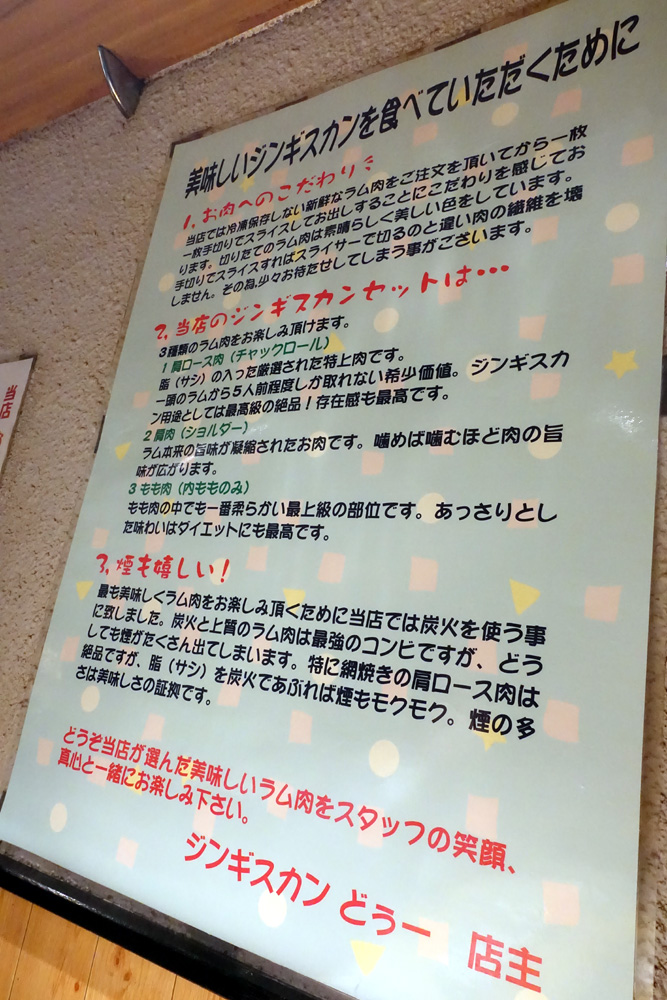 美味しいジンギスカンを食べていただくために
1, お肉へのこだわり
当店では冷凍保存しない新鮮なラム肉をご注文を頂いてから一枚
一枚手切りでスライスしてお出しすることにこだわりを感じてお
ります。切りたてのラム肉は素晴らしく美しい色をしています。
手切りでスライスすればスライサーで切るのと違い肉の繊維を壊
しません。その為,少々お待たせしてしまう事がございます。
2, 当店のジンギスカンセットは・・・
3種類のラム肉をお楽しみ頂けます。
1 肩ロース肉（チャックロール）
脂（サシ）の入った厳選された特上肉です。
一頭のラムから5人前程度しか取れない希少価値。ジンギスカ
ン用途としては最高級の絶品！存在感も最高です。
2 肩肉（ショルダー）
ラム本来の旨味が凝縮されたお肉です。噛めば噛むほど肉の旨
味が広がります。
3 もも肉（内もものみ）
もも肉の中でも一番柔らかい最上級の部位です。あっさりとし
た味わいはダイエットにも最高です。
3, 煙も嬉しい！
最も美味しくラム肉をお楽しみ頂くために当店では炭火を使う事
に致しました。炭火と上質のラム肉は最強のコンビですが、どう
しても煙がたくさん出てしまいます。特に網焼きの肩ロース肉は
絶品ですが、脂（サシ）を炭火であぶれば煙もモクモク。煙の多
さは美味しさの証拠です。
どうぞ当店が選んだ美味しいラム肉をスタッフの笑顔、
真心と一緒にお楽しみ下さい。
ジンギスカン どぅー 店主
当店